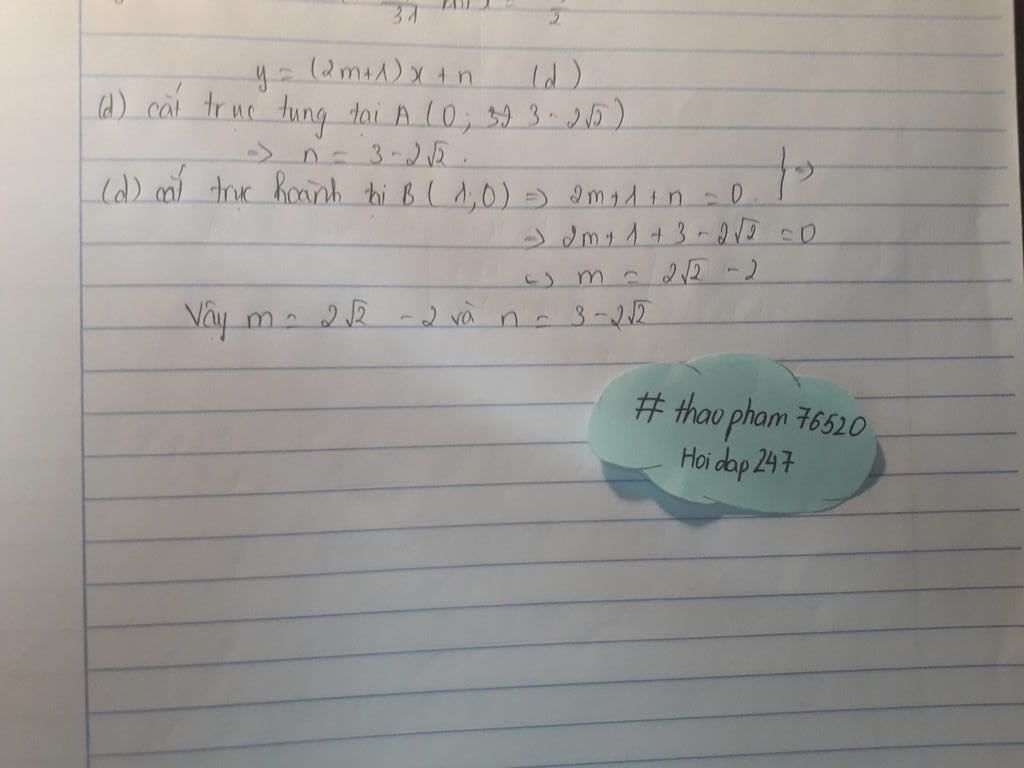 31
2
y = (2m+1)x + n (d)
(d) cắt trục tung tại A (0; 3 - 2√2)
=> n = 3 - 2√2.
(d) cắt trục hoành tại B (1;0) => 2m+1+n = 0. } =>
=> 2m+1+3-2√2 = 0
<=> m = 2√2 - 2
Vậy m = 2√2 - 2 và n = 3 - 2√2
# thaopham76520
Hoidap247